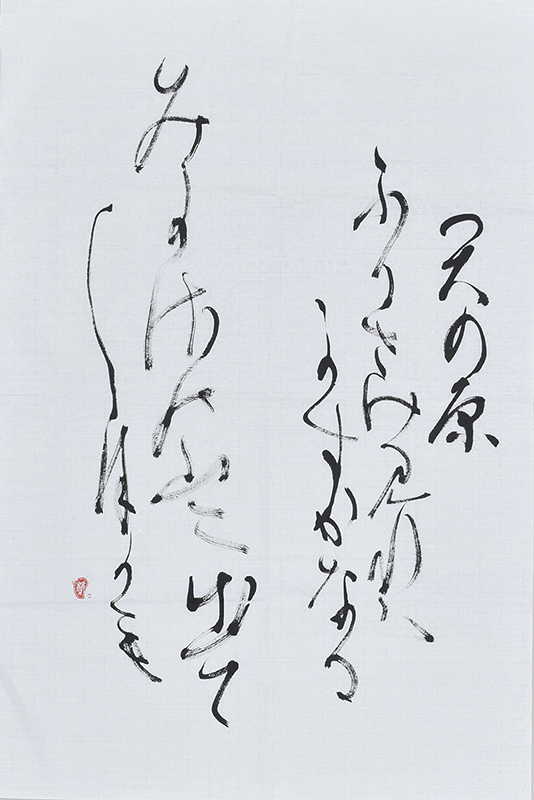 天の原
ふりさけ見れハ
かすかなる
みかさの山に出て
し月かも